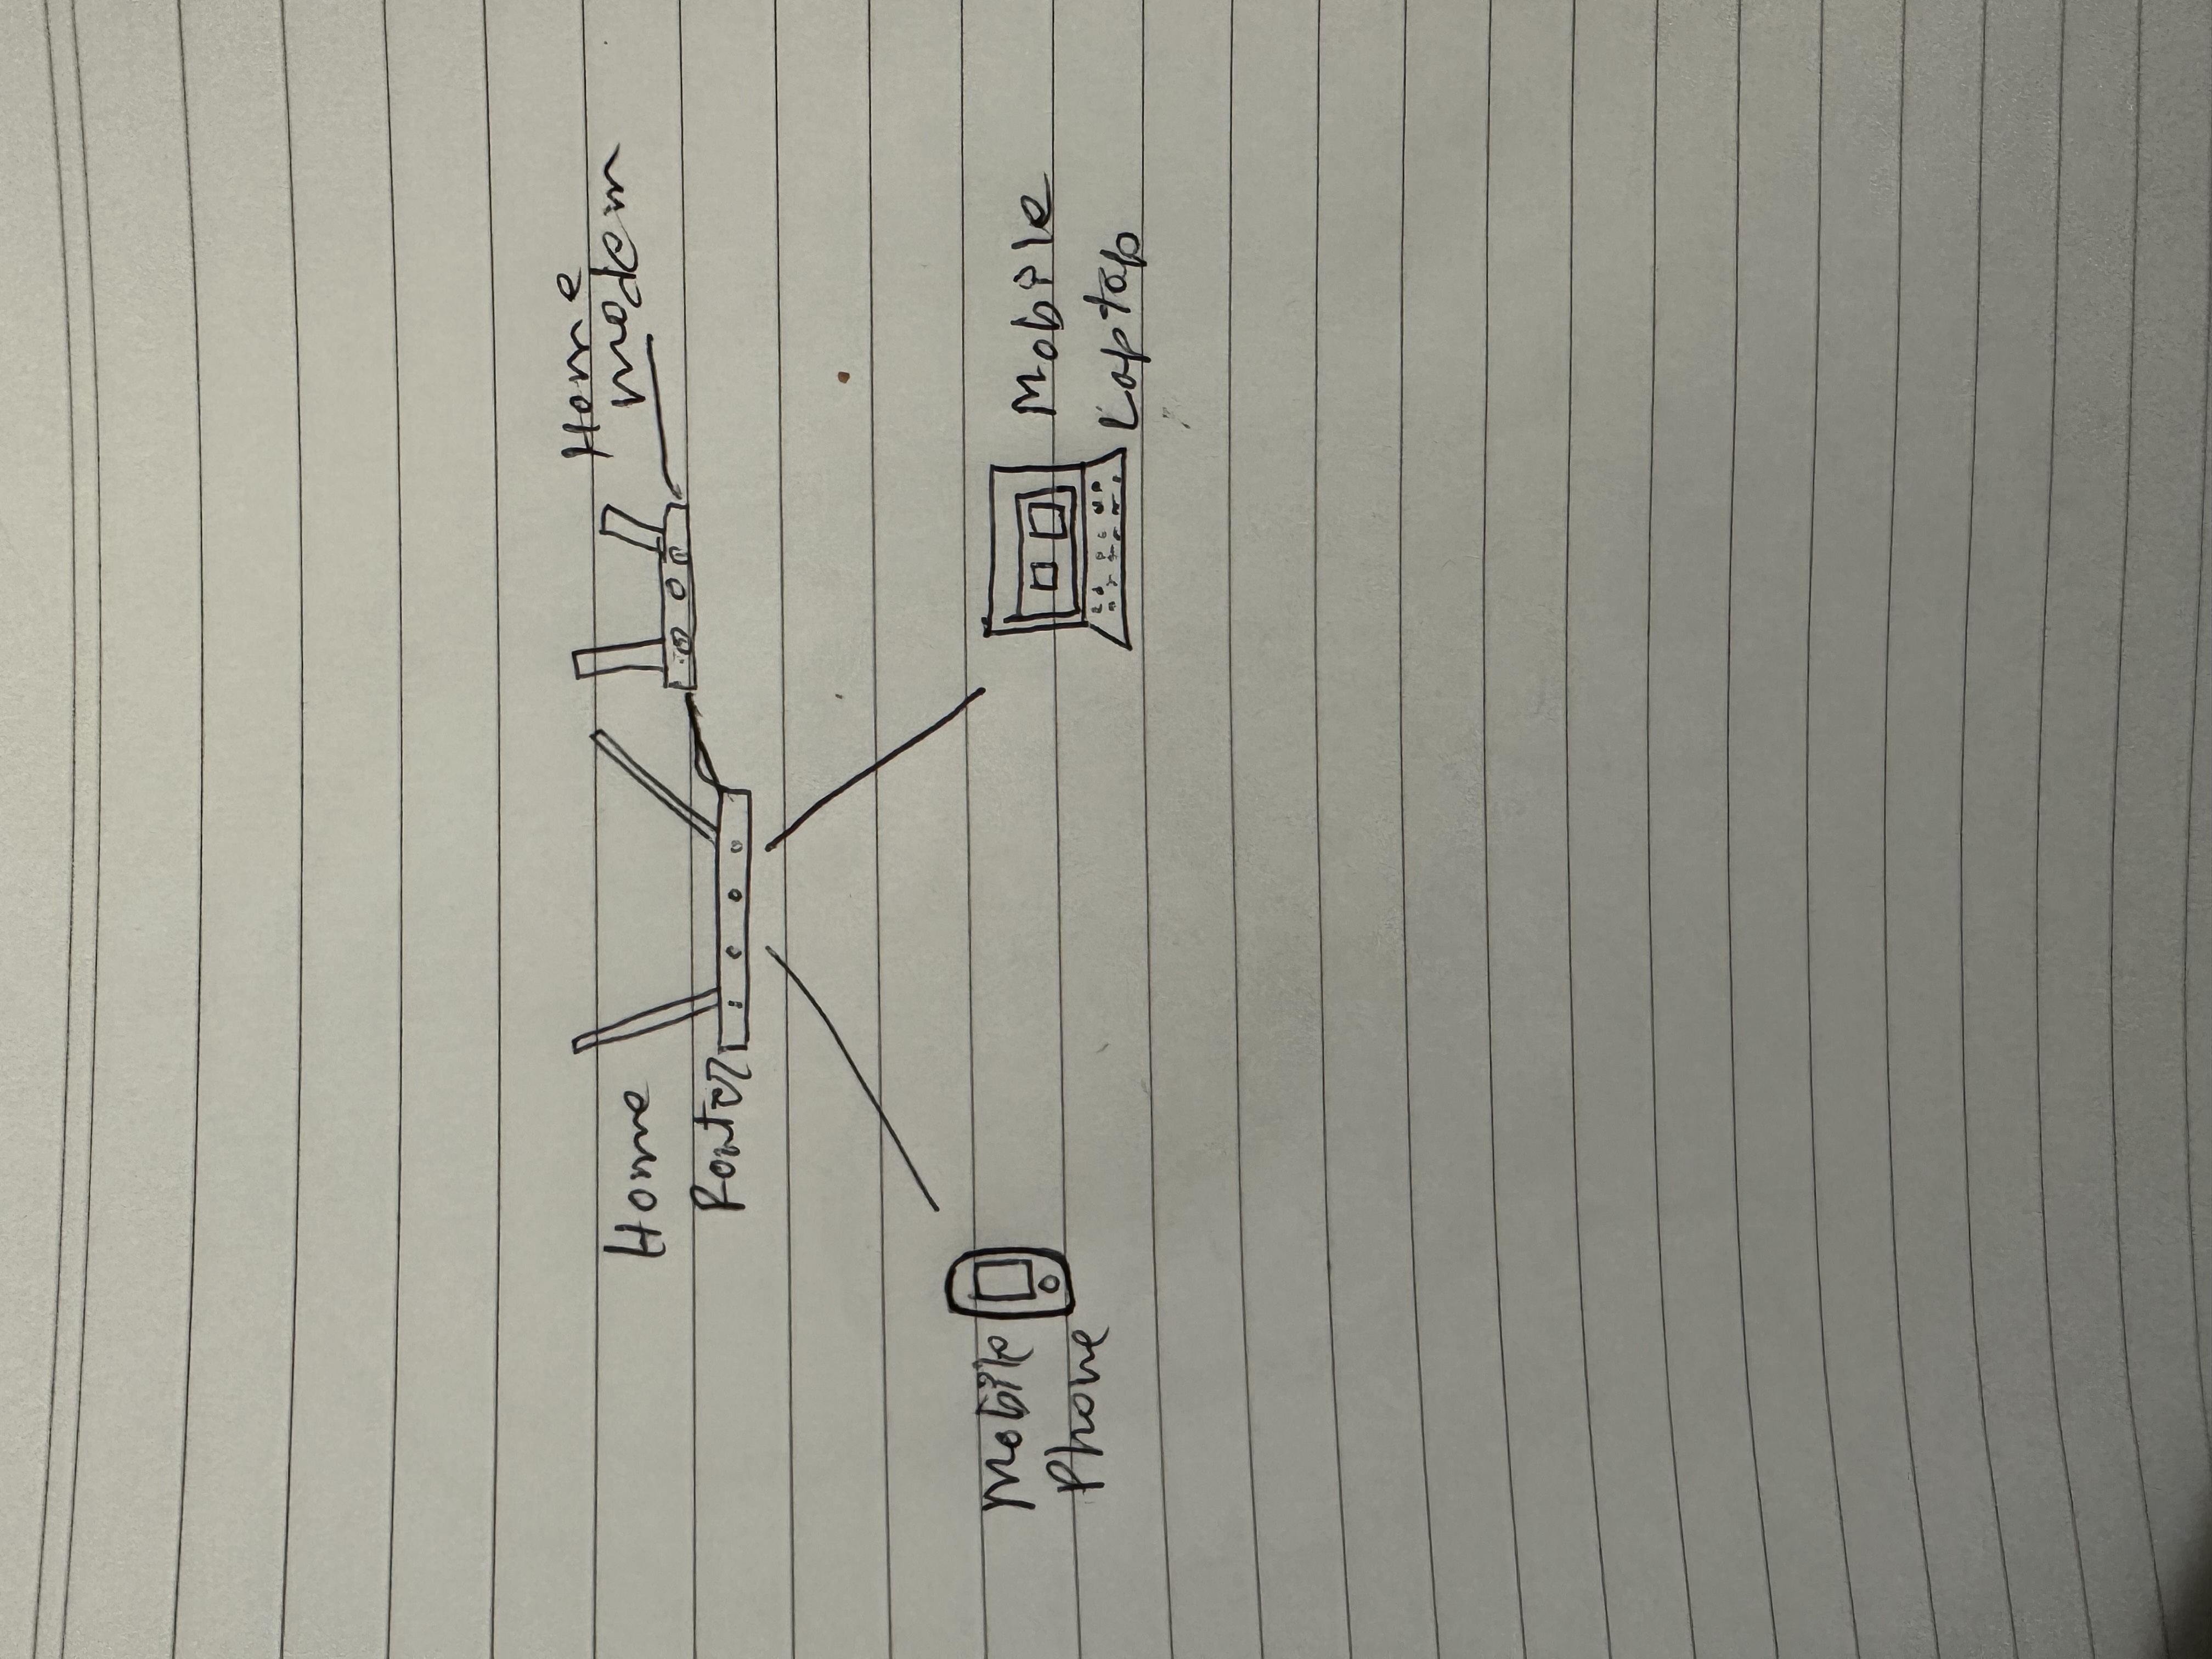 Home
modem
Home
Router
Mobile
Phone
Mobile
Laptop